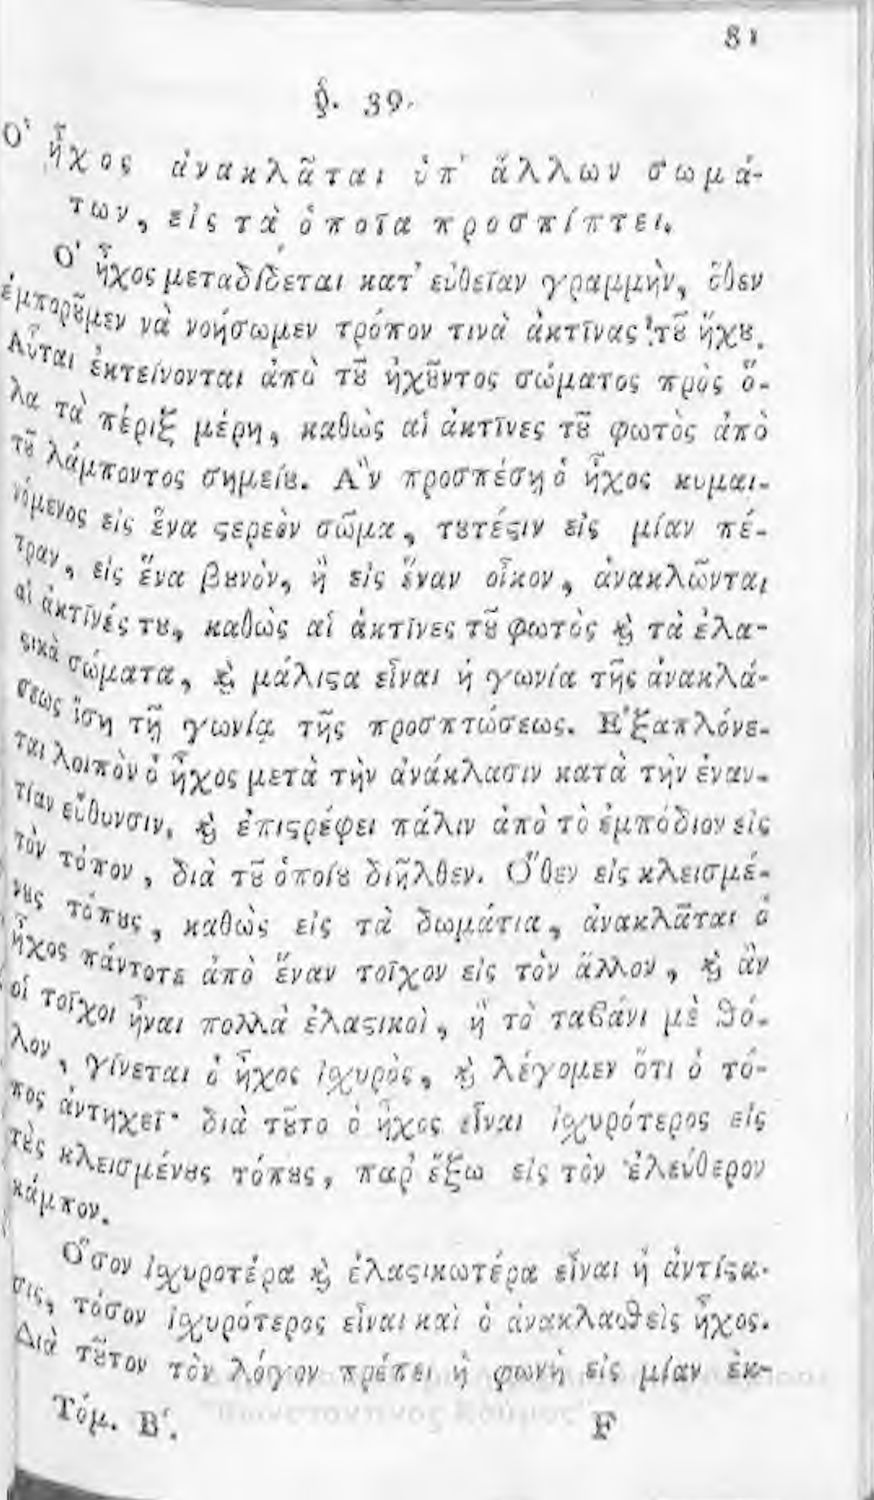 81
§. 39.
Ο῾ ἦχος ἀνακλᾶται ὑπ' ἄλλων σωμά-
των, εἰς τὰ ὁποῖα προσπίπτει.
Ο῾ ἦχος μεταδίδεται κατ' εὐθεῖαν γραμμὴν, ὅθεν
ἐμπορȣ͂μεν νὰ νοήσωμεν τρόπον τινὰ ἀκτῖνας τȣ͂ ἤχȣ.
Αὗται ἐκτείνονται ἀπὸ τȣ͂ ἠχȣ͂ντος σώματος πρὸς ὅ-
λα τὰ πέριξ μέρη, καθὼς αἱ ἀκτῖνες τȣ͂ φωτὸς ἀπὸ
τȣ͂ λάμποντος σημείȣ. Α῍ν προσπέσῃ ὁ ἦχος κυμαι-
νόμενος εἰς ἕνα ϛερεὸν σῶμα, τȣτέϛιν εἰς μίαν πέ-
τραν, εἰς ἕνα βȣνὸν, ἢ εἰς ἕναν οἶκον, ἀνακλῶνται
αἱ ἀκτῖνές τȣ, καθὼς αἱ ἀκτῖνες τȣ͂ φωτὸς ϗ̀ τὰ ἐλα-
ϛικὰ σώματα, ϗ̀ μάλιϛα εἶναι ἡ γωνία τῆς ἀνακλά-
σεως ἴση τῇ γωνίᾳ τῆς προσπτώσεως. Ε᾿ξαπλόνε-
ται λοιπὸν ὁ ἦχος μετὰ τὴν ἀνάκλασιν κατὰ τὴν ἐναν-
τίαν εὔθυνσιν, ϗ̀ ἐπιϛρέφει πάλιν ἀπὸ τὸ ἐμπόδιον εἰς
τὸν τόπον, διὰ τȣ͂ ὁποίȣ διῆλθεν. Ο῞θεν εἰς κλεισμέ-
νȣς τόπȣς, καθὼς εἰς τὰ δωμάτια, ἀνακλᾶται ὁ
ἦχος πάντοτε ἀπὸ ἕναν τοῖχον εἰς τὸν ἄλλον, ϗ̀ ἂν
οἱ τοῖχοι ἦναι πολλὰ ἐλαϛικοὶ, ἢ τὸ ταβάνι μὲ θό-
λον, γίνεται ὁ ἦχος ἰσχυρὸς, ϗ̀ λέγομεν ὅτι ὁ τό-
πος ἀντηχεῖ· διὰ τȣ͂το ὁ ἦχος εἶναι ἰσχυρότερος εἰς
τȣ̀ς κλεισμένȣς τόπȣς, παρ' ἔξω εἰς τὸν ἐλεύθερον
κάμπον.
Ο῞σον ἰσχυροτέρα ϗ̀ ἐλαϛικωτέρα εἶναι ἡ ἀντίϛα-
σις, τόσον ἰσχυρότερος εἶναι καὶ ὁ ἀνακλασθεὶς ἦχος.
Διὰ τȣ͂τον τὸν λόγον πρέπει ἡ φωνὴ εἰς μίαν ἐκ-
Τόμ. Β'. F